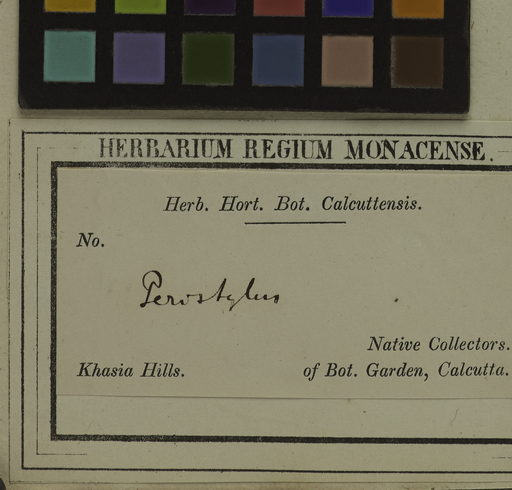 HERBARIUM REGIUM MONACENSE.
Herb. Hort. Bot. Calcuttensis.
No.
Peristylus
Native Collectors.
Khasia Hills. of Bot. Garden, Calcutta.